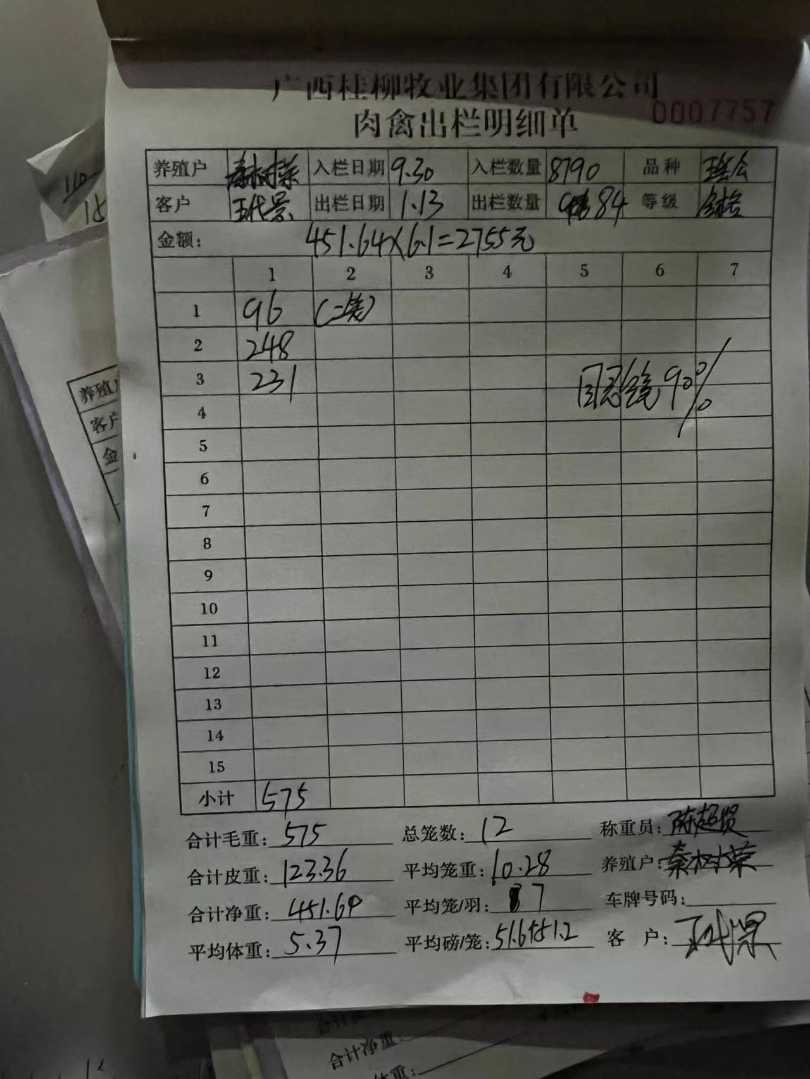 广西桂柳牧业集团有限公司
肉禽出栏明细单 0007757
养殖户 秦树荣 入栏日期 9.30 入栏数量 8790 品种
客户 王代景 出栏日期 1.13 出栏数量 84 等级
金额: 451.64×6.1=2755元
1 2 3 4 5 6 7
1 96 (二笼)
2 248
3 231 90%
4
5
6
7
8
9
10
11
12
13
14
15
小计 575
合计毛重: 575 总笼数: 12 称重员: 陈超贤
合计皮重: 123.36 平均笼重: 10.28 养殖户: 秦树荣
合计净重: 451.64 平均笼/羽: 7 车牌号码:
平均体重: 5.37 平均磅/笼: 客 户: 王代景
养殖户
客户
金
合计净重:
体重: